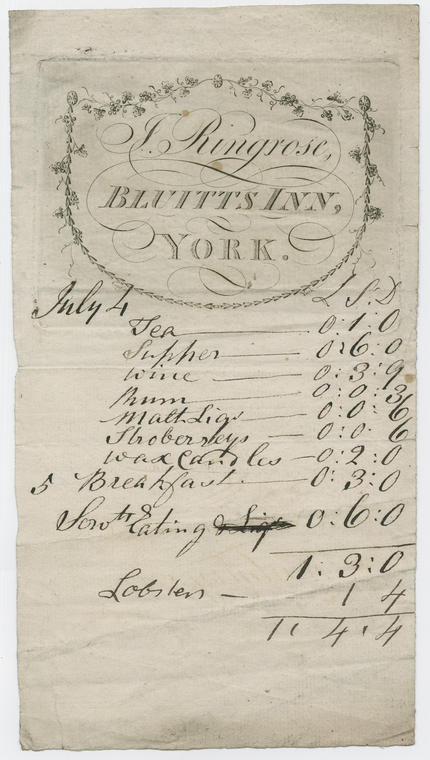 J. Ringrose,
BLUITTS INN,
YORK.
July 4 L S. D
Tea 0:1:0
Supher 0:6:0
Wine 0:3:9
Rum 0:0:3
Malt Liqr 0:0:6
Stroberreys 0:0:6
Wax Candles 0:2:0
5 Breakfast 0:3:0
Servts Eating & Liqr 0:6:0
1:3:0
Lobsters 1 4
1:4:4